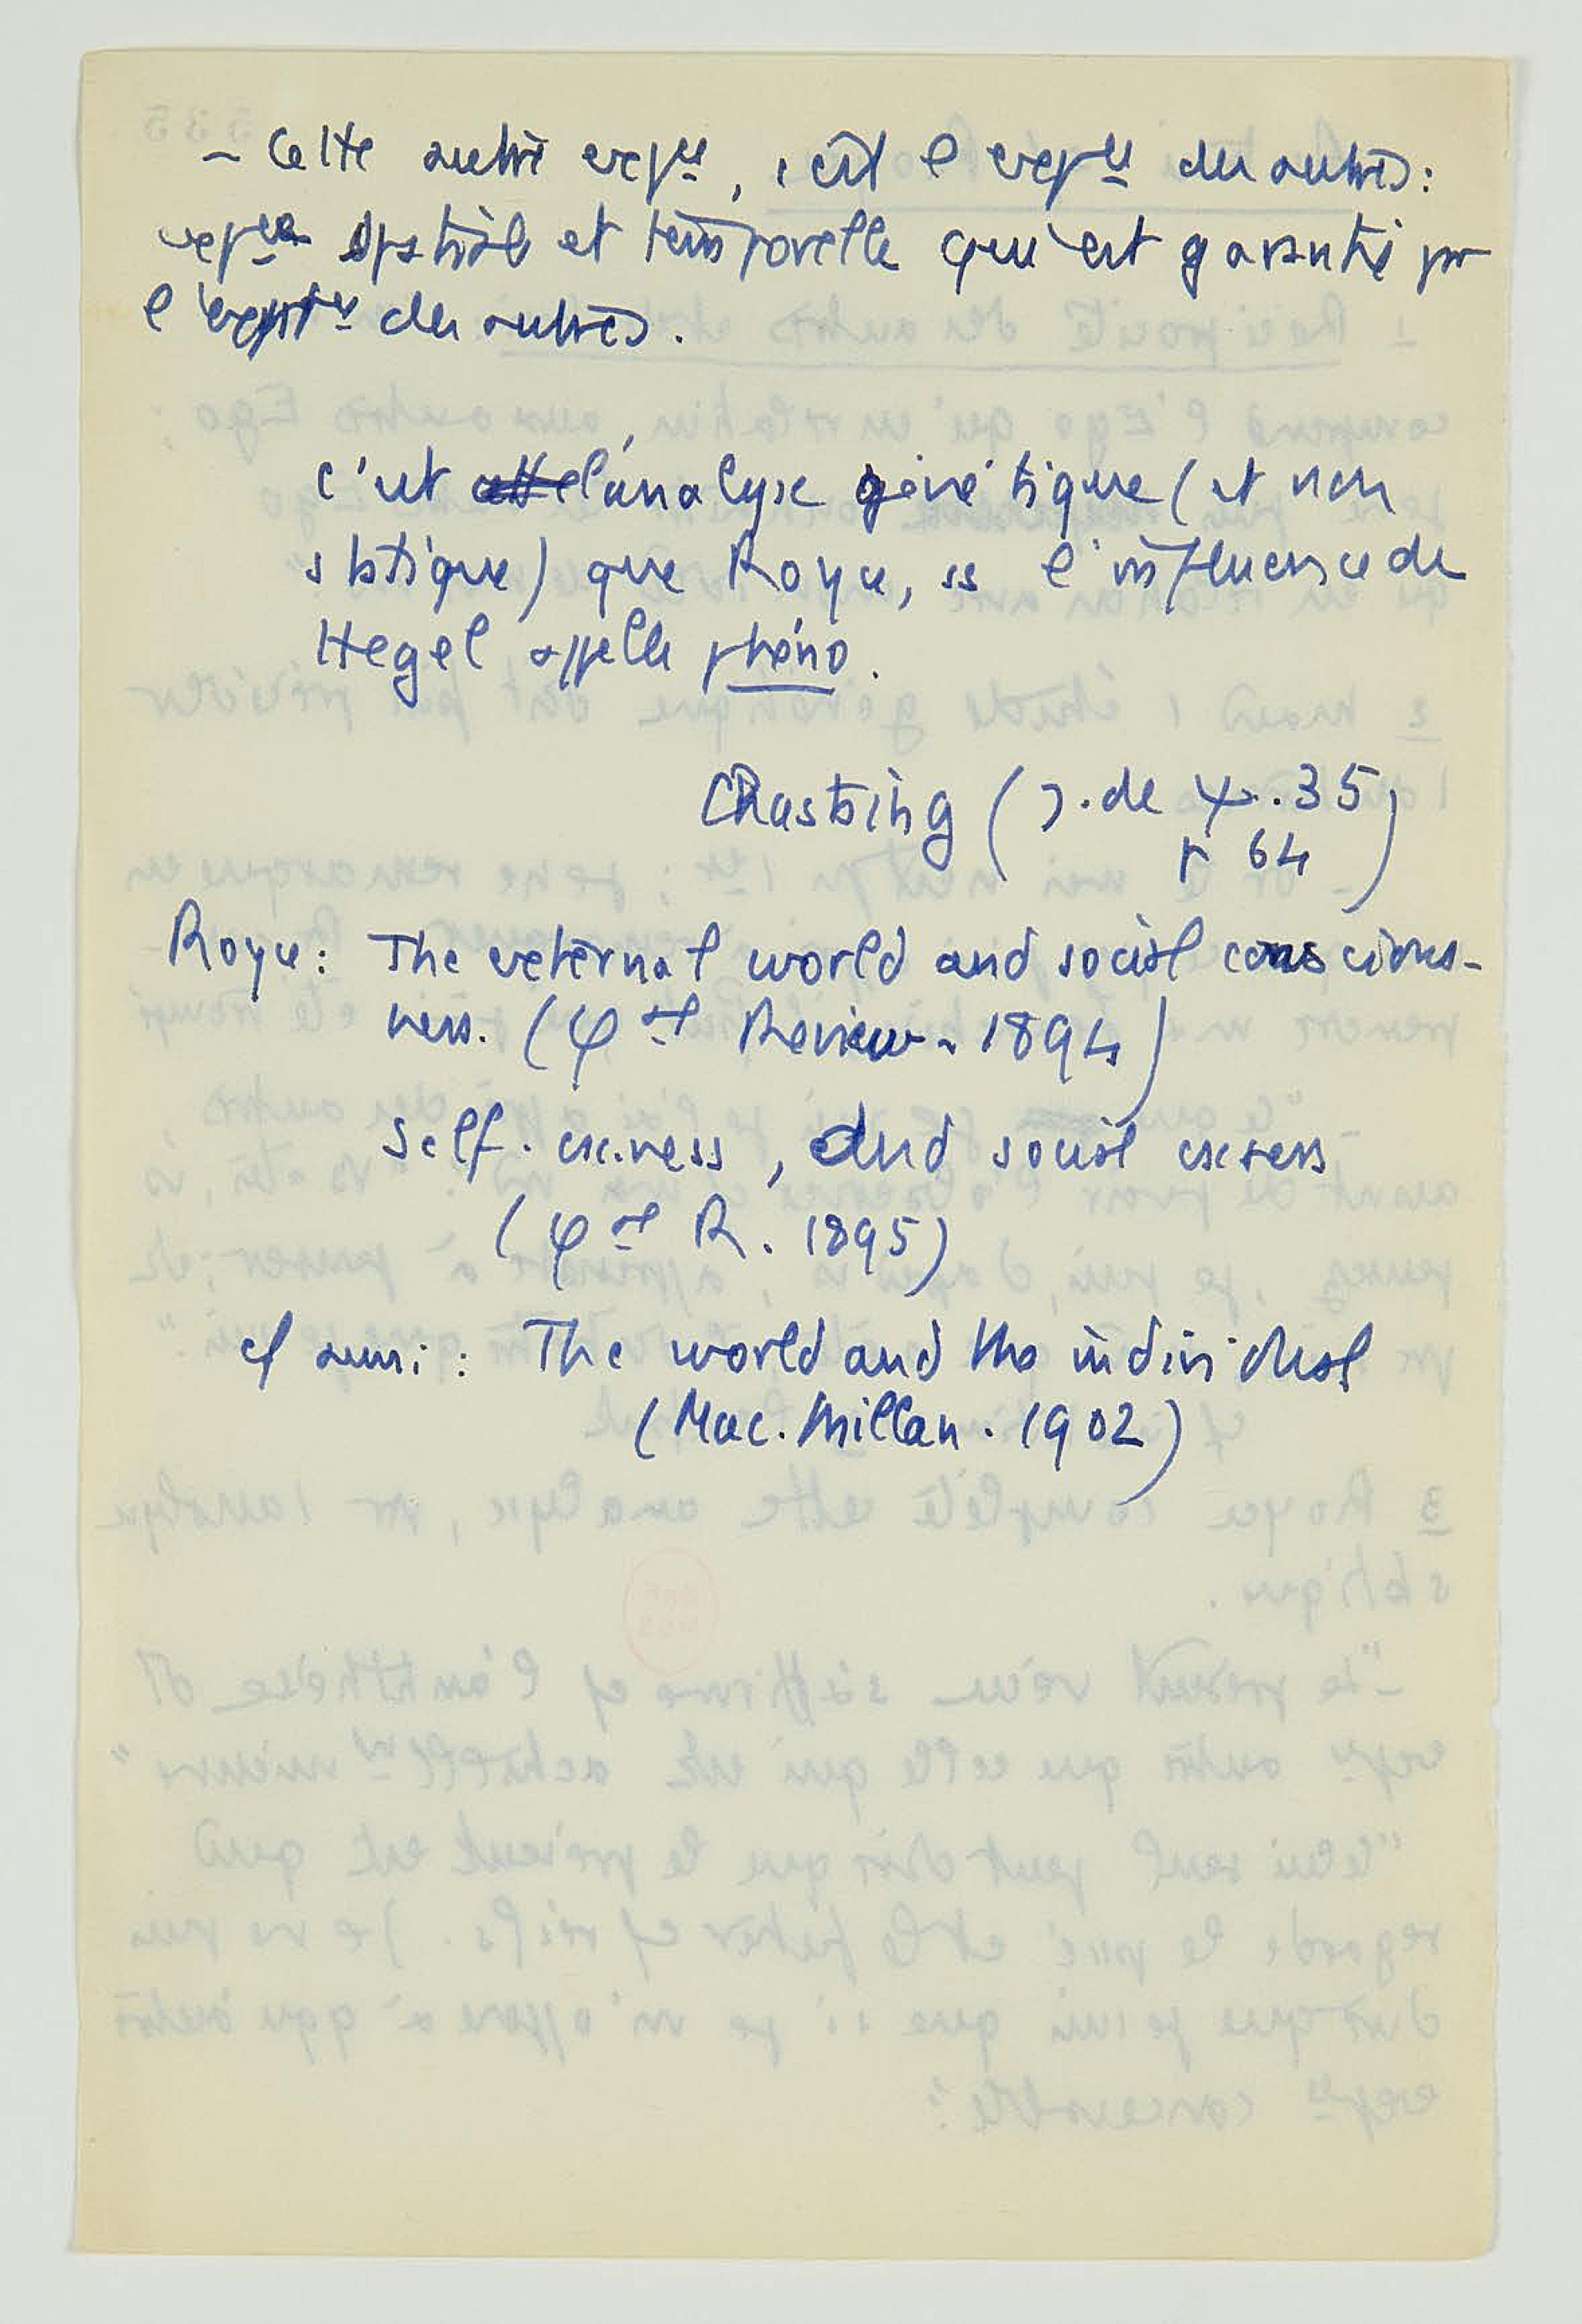 - Cette autre expce, c'est l'expce des autres :
expce spatiale et temporelle qui est garantie par
l'expce des autres.
c'est l'analyse génétique (et non
statique) que Royce, ss l'influence de
Hegel appelle phéno.
Chastaing (J. de ψ. 35
p 64)
Royce : The external world and social conscious-
ness. (φal Review. 1894)
Self. cscness, and social cscness
(φal R. 1895)
cf aussi : The world and the individual
(Mac. Millan. 1902)